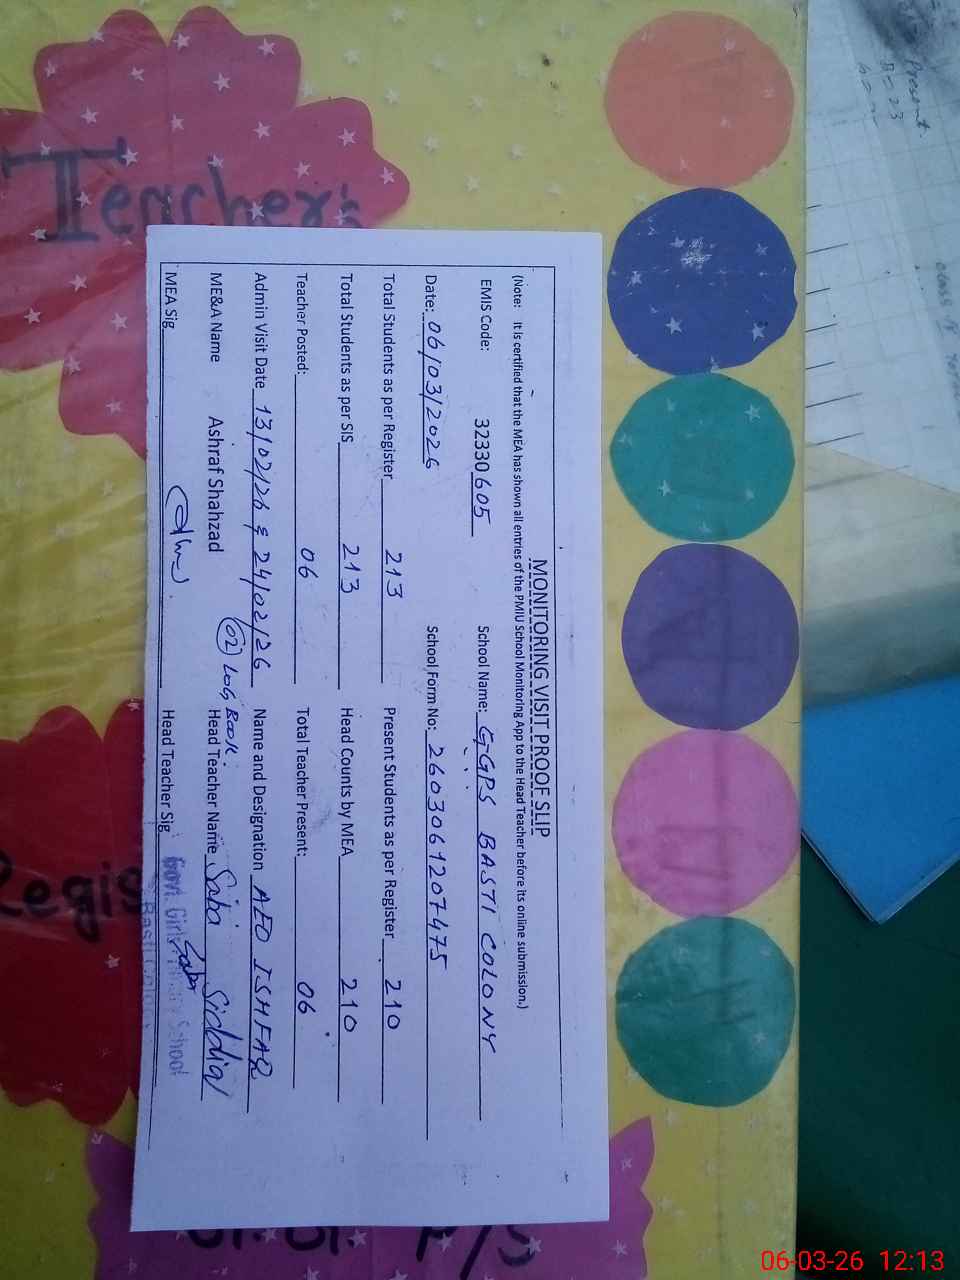 MONITORING VISIT PROOF SLIP
(Note: It is certified that the MEA has shown all entries of the PMIU School Monitoring App to the Head Teacher before its online submission.)
EMIS Code: 32330605 School Name: GGPS BASTI COLONY
Date: 06/03/2026 School Form No: 2603061207475
Total Students as per Register 213 Present Students as per Register 210
Total Students as per SIS 213 Head Counts by MEA 210
Teacher Posted: 06 Total Teacher Present: 06
Admin Visit Date 13/02/26 & 24/02/26 Name and Designation AEO ISHFAQ
02 LOG BOOK.
ME&A Name Ashraf Shahzad Head Teacher Name Saba Siddiqi
MEA Sig Head Teacher Sig Saba
Govt. Girls Primary School
Basti Colony
Teacher's
Regis
P/S
Present.
06-03-26 12:13